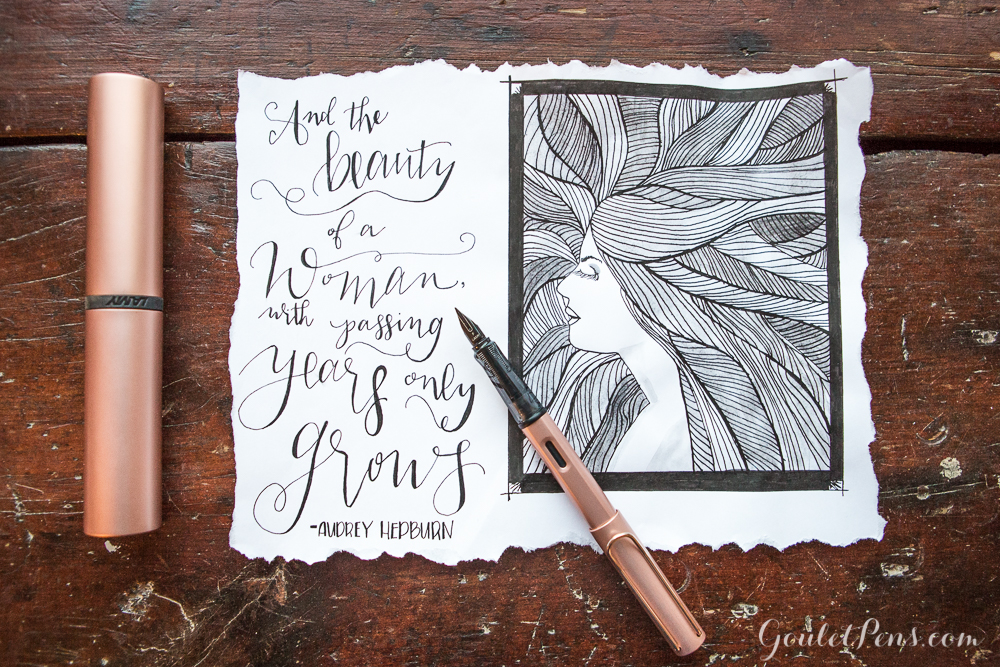 And the
beauty
of a
Woman,
with passing
years only
grows
-AUDREY HEPBURN
LAMY
GouletPens.com